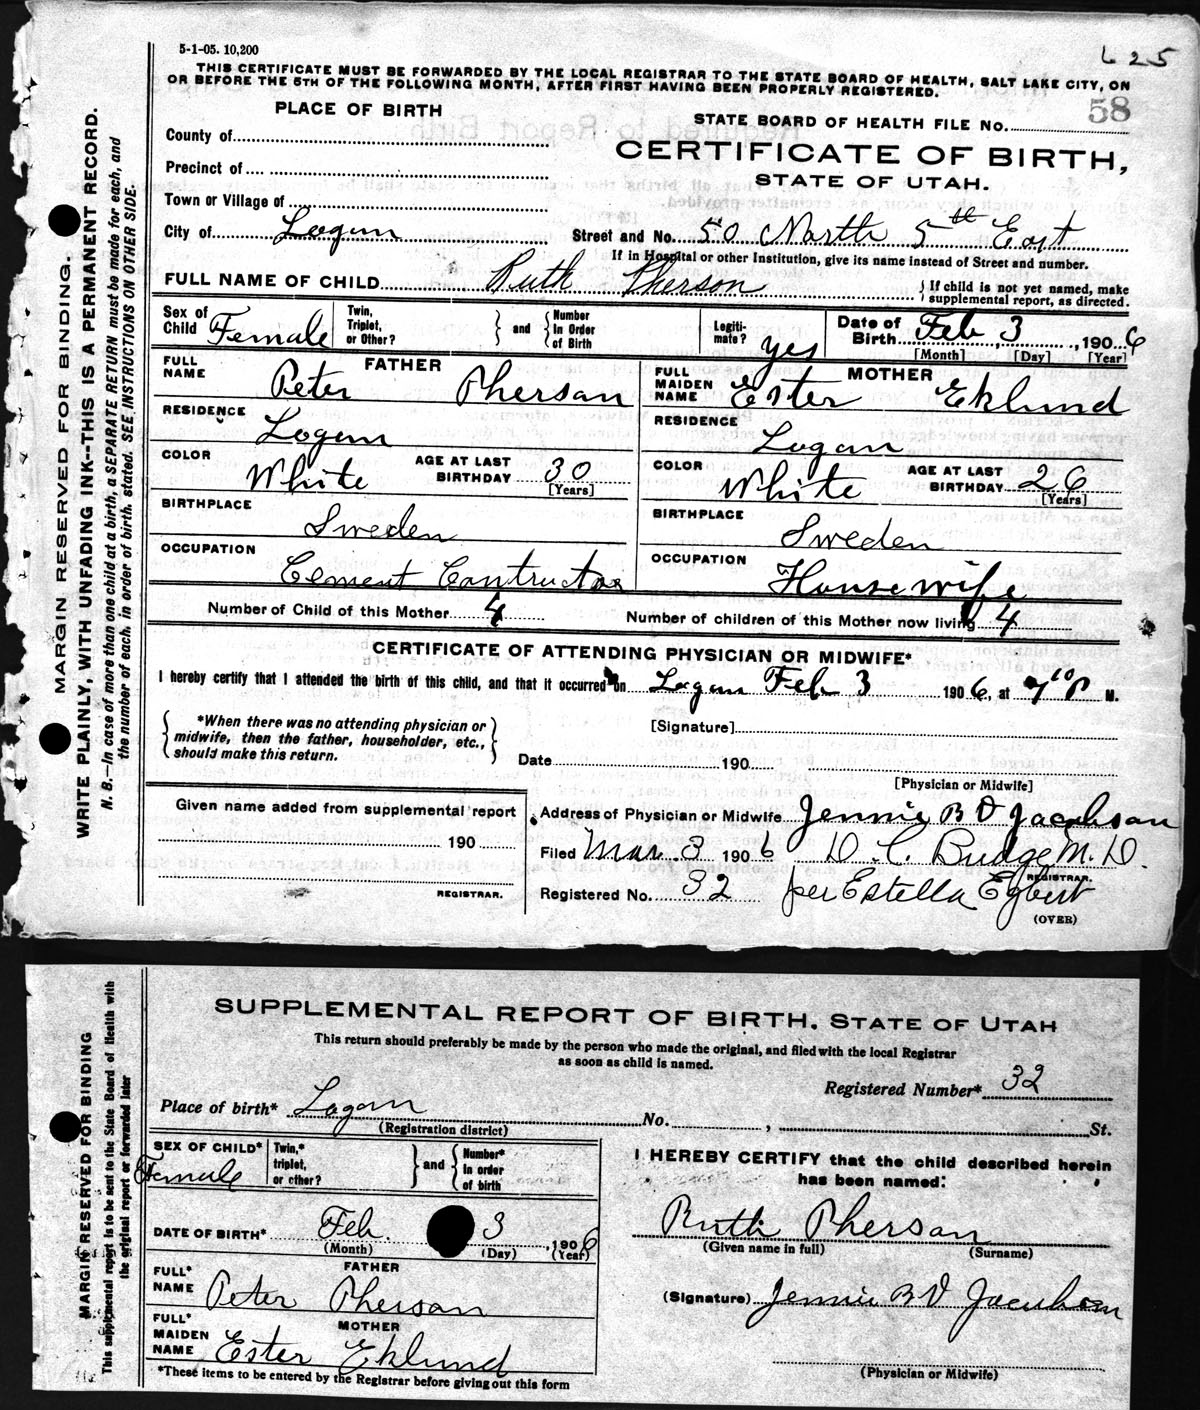 5-1-05. 10,200
625
THIS CERTIFICATE MUST BE FORWARDED BY THE LOCAL REGISTRAR TO THE STATE BOARD OF HEALTH, SALT LAKE CITY, ON
OR BEFORE THE 5TH OF THE FOLLOWING MONTH, AFTER FIRST HAVING BEEN PROPERLY REGISTERED.
58
PLACE OF BIRTH
STATE BOARD OF HEALTH FILE NO.
County of
CERTIFICATE OF BIRTH,
Precinct of
STATE OF UTAH.
Town or Village of
City of Logan Street and No. 50 North 5th East
If in Hospital or other Institution, give its name instead of Street and number.
FULL NAME OF CHILD Ruth Pherson } If child is not yet named, make
supplemental report, as directed.
Sex of Child Female
Twin, Triplet, or Other? } and { Number In Order of Birth
Legiti- mate? yes
Date of Birth Feb 3, 1906
[Month] [Day] [Year]
FATHER
FULL NAME Peter Pherson
RESIDENCE Logan
COLOR White AGE AT LAST BIRTHDAY 30
[Years]
BIRTHPLACE Sweden
OCCUPATION Cement Contructor
MOTHER
FULL MAIDEN NAME Ester Eklund
RESIDENCE Logan
COLOR White AGE AT LAST BIRTHDAY 26
[Years]
BIRTHPLACE Sweden
OCCUPATION Housewife
Number of Child of this Mother 4 Number of children of this Mother now living 4
CERTIFICATE OF ATTENDING PHYSICIAN OR MIDWIFE*
I hereby certify that I attended the birth of this child, and that it occurred on Logan Feb 3 1906, at 7 10 P M.
{ *When there was no attending physician or
midwife, then the father, householder, etc.,
should make this return. }
[Signature]
Date 190
[Physician or Midwife]
Given name added from supplemental report
190
REGISTRAR.
Address of Physician or Midwife Jennie B V Jacobson
Filed Mar. 3 1906 D. C. Budge M. D.
REGISTRAR.
Registered No. 32 per Estella Egbert
(OVER)
MARGIN RESERVED FOR BINDING.
WRITE PLAINLY, WITH UNFADING INK--THIS IS A PERMANENT RECORD.
N. B.—In case of more than one child at a birth, a SEPARATE RETURN must be made for each, and
the number of each, in order of birth, stated. SEE INSTRUCTIONS ON OTHER SIDE.
SUPPLEMENTAL REPORT OF BIRTH. STATE OF UTAH
This return should preferably be made by the person who made the original, and filed with the local Registrar
as soon as child is named.
Registered Number* 32
Place of birth* Logan No. , St.
(Registration district)
SEX OF CHILD* Female
Twin,* triplet, or other? } and { Number* In order of birth
DATE OF BIRTH* Feb. 3, 1906
(Month) (Day) (Year)
FATHER
FULL* NAME Peter Pherson
MOTHER
FULL* MAIDEN NAME Ester Eklund
*These items to be entered by the Registrar before giving out this form
I HEREBY CERTIFY that the child described herein
has been named:
Ruth Pherson
(Given name in full) (Surname)
(Signature) Jennie B V Jacobson
(Physician or Midwife)
MARGIN RESERVED FOR BINDING
This supplemental report is to be sent to the State Board of Health with
the original report or forwarded later